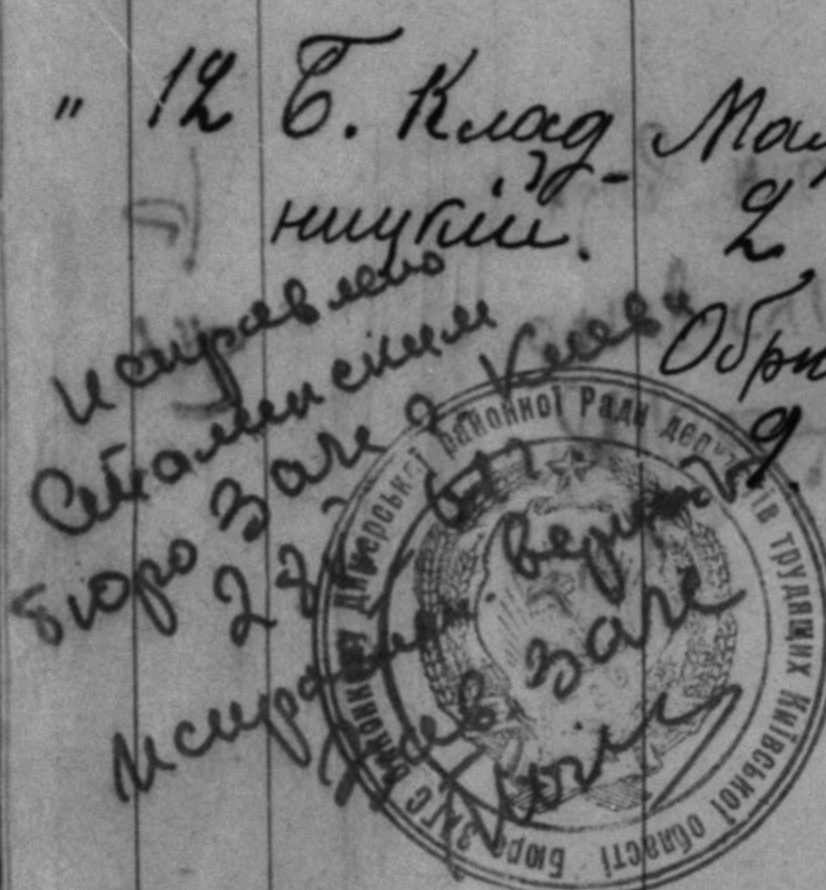 " 12 Б. Клад Мац
ницкий. 2
Обри
9.
исправлено
Сталинским
бюро Загс г. Киева
28
Исправлен. верно
Зав Загс
Бюро ЗАГС виконкому Димерської районної Ради депутатів трудящих Київської області